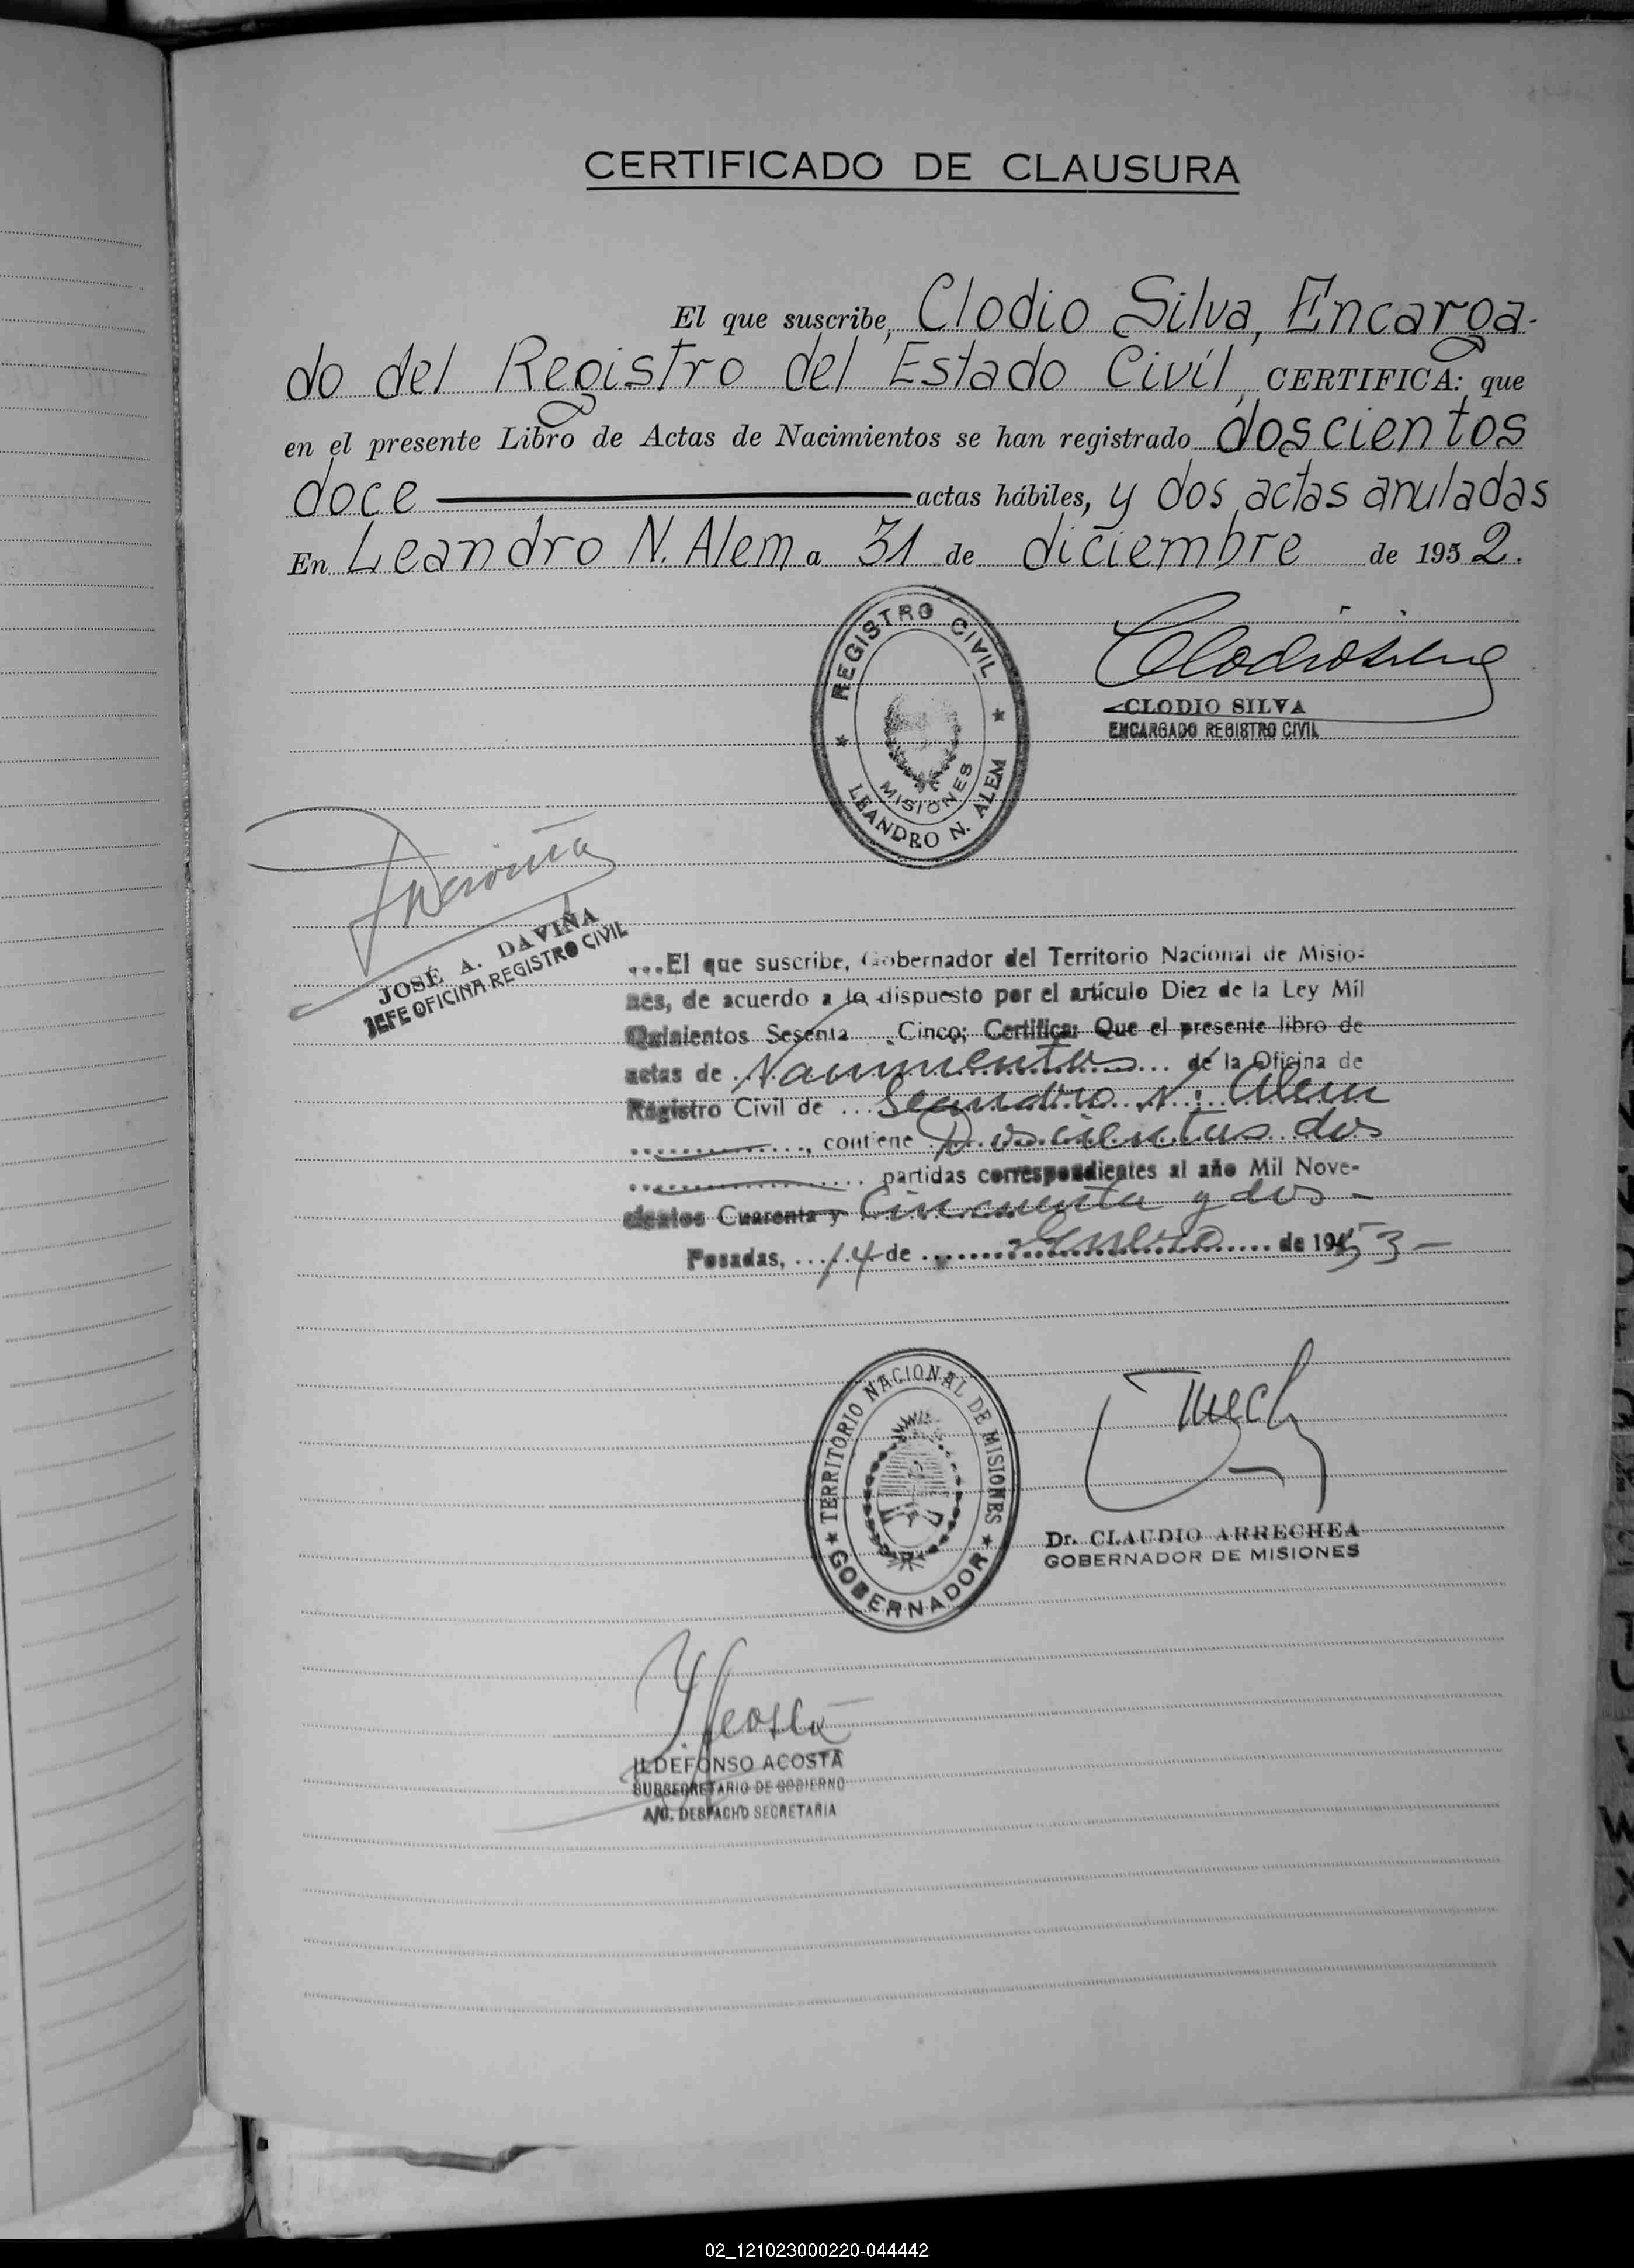 CERTIFICADO DE CLAUSURA
El que suscribe, Clodio Silva, Encarga-
do del Registro del Estado Civil, CERTIFICA: que
en el presente Libro de Actas de Nacimientos se han registrado doscientos
doce actas hábiles, y dos actas anuladas
En Leandro N. Alem a 31 de diciembre de 1952.
REGISTRO CIVIL
MISIONES
LEANDRO N. ALEM
Clodio Silva
CLODIO SILVA
ENCARGADO REGISTRO CIVIL
JOSÉ A. DAVIÑA
JEFE OFICINA REGISTRO CIVIL
...El que suscribe, Gobernador del Territorio Nacional de Misio-
nes, de acuerdo a lo dispuesto por el artículo Diez de la Ley Mil
Quinientos Sesenta Cinco; Certifica: Que el presente libro de
actas de Nacimientos de la Oficina de
Registro Civil de Leandro N. Alem
, contiene Doscientas dos
partidas correspondientes al año Mil Nove-
cientos Cuarenta y Cincuenta y dos -
Posadas, 14 de Enero de 1953-
TERRITORIO NACIONAL DE MISIONES
GOBERNADOR
Dr. CLAUDIO ARRECHEA
GOBERNADOR DE MISIONES
ILDEFONSO ACOSTA
SUBSECRETARIO DE GOBIERNO
A/C. DESPACHO SECRETARIA
W
X
02_121023000220-044442